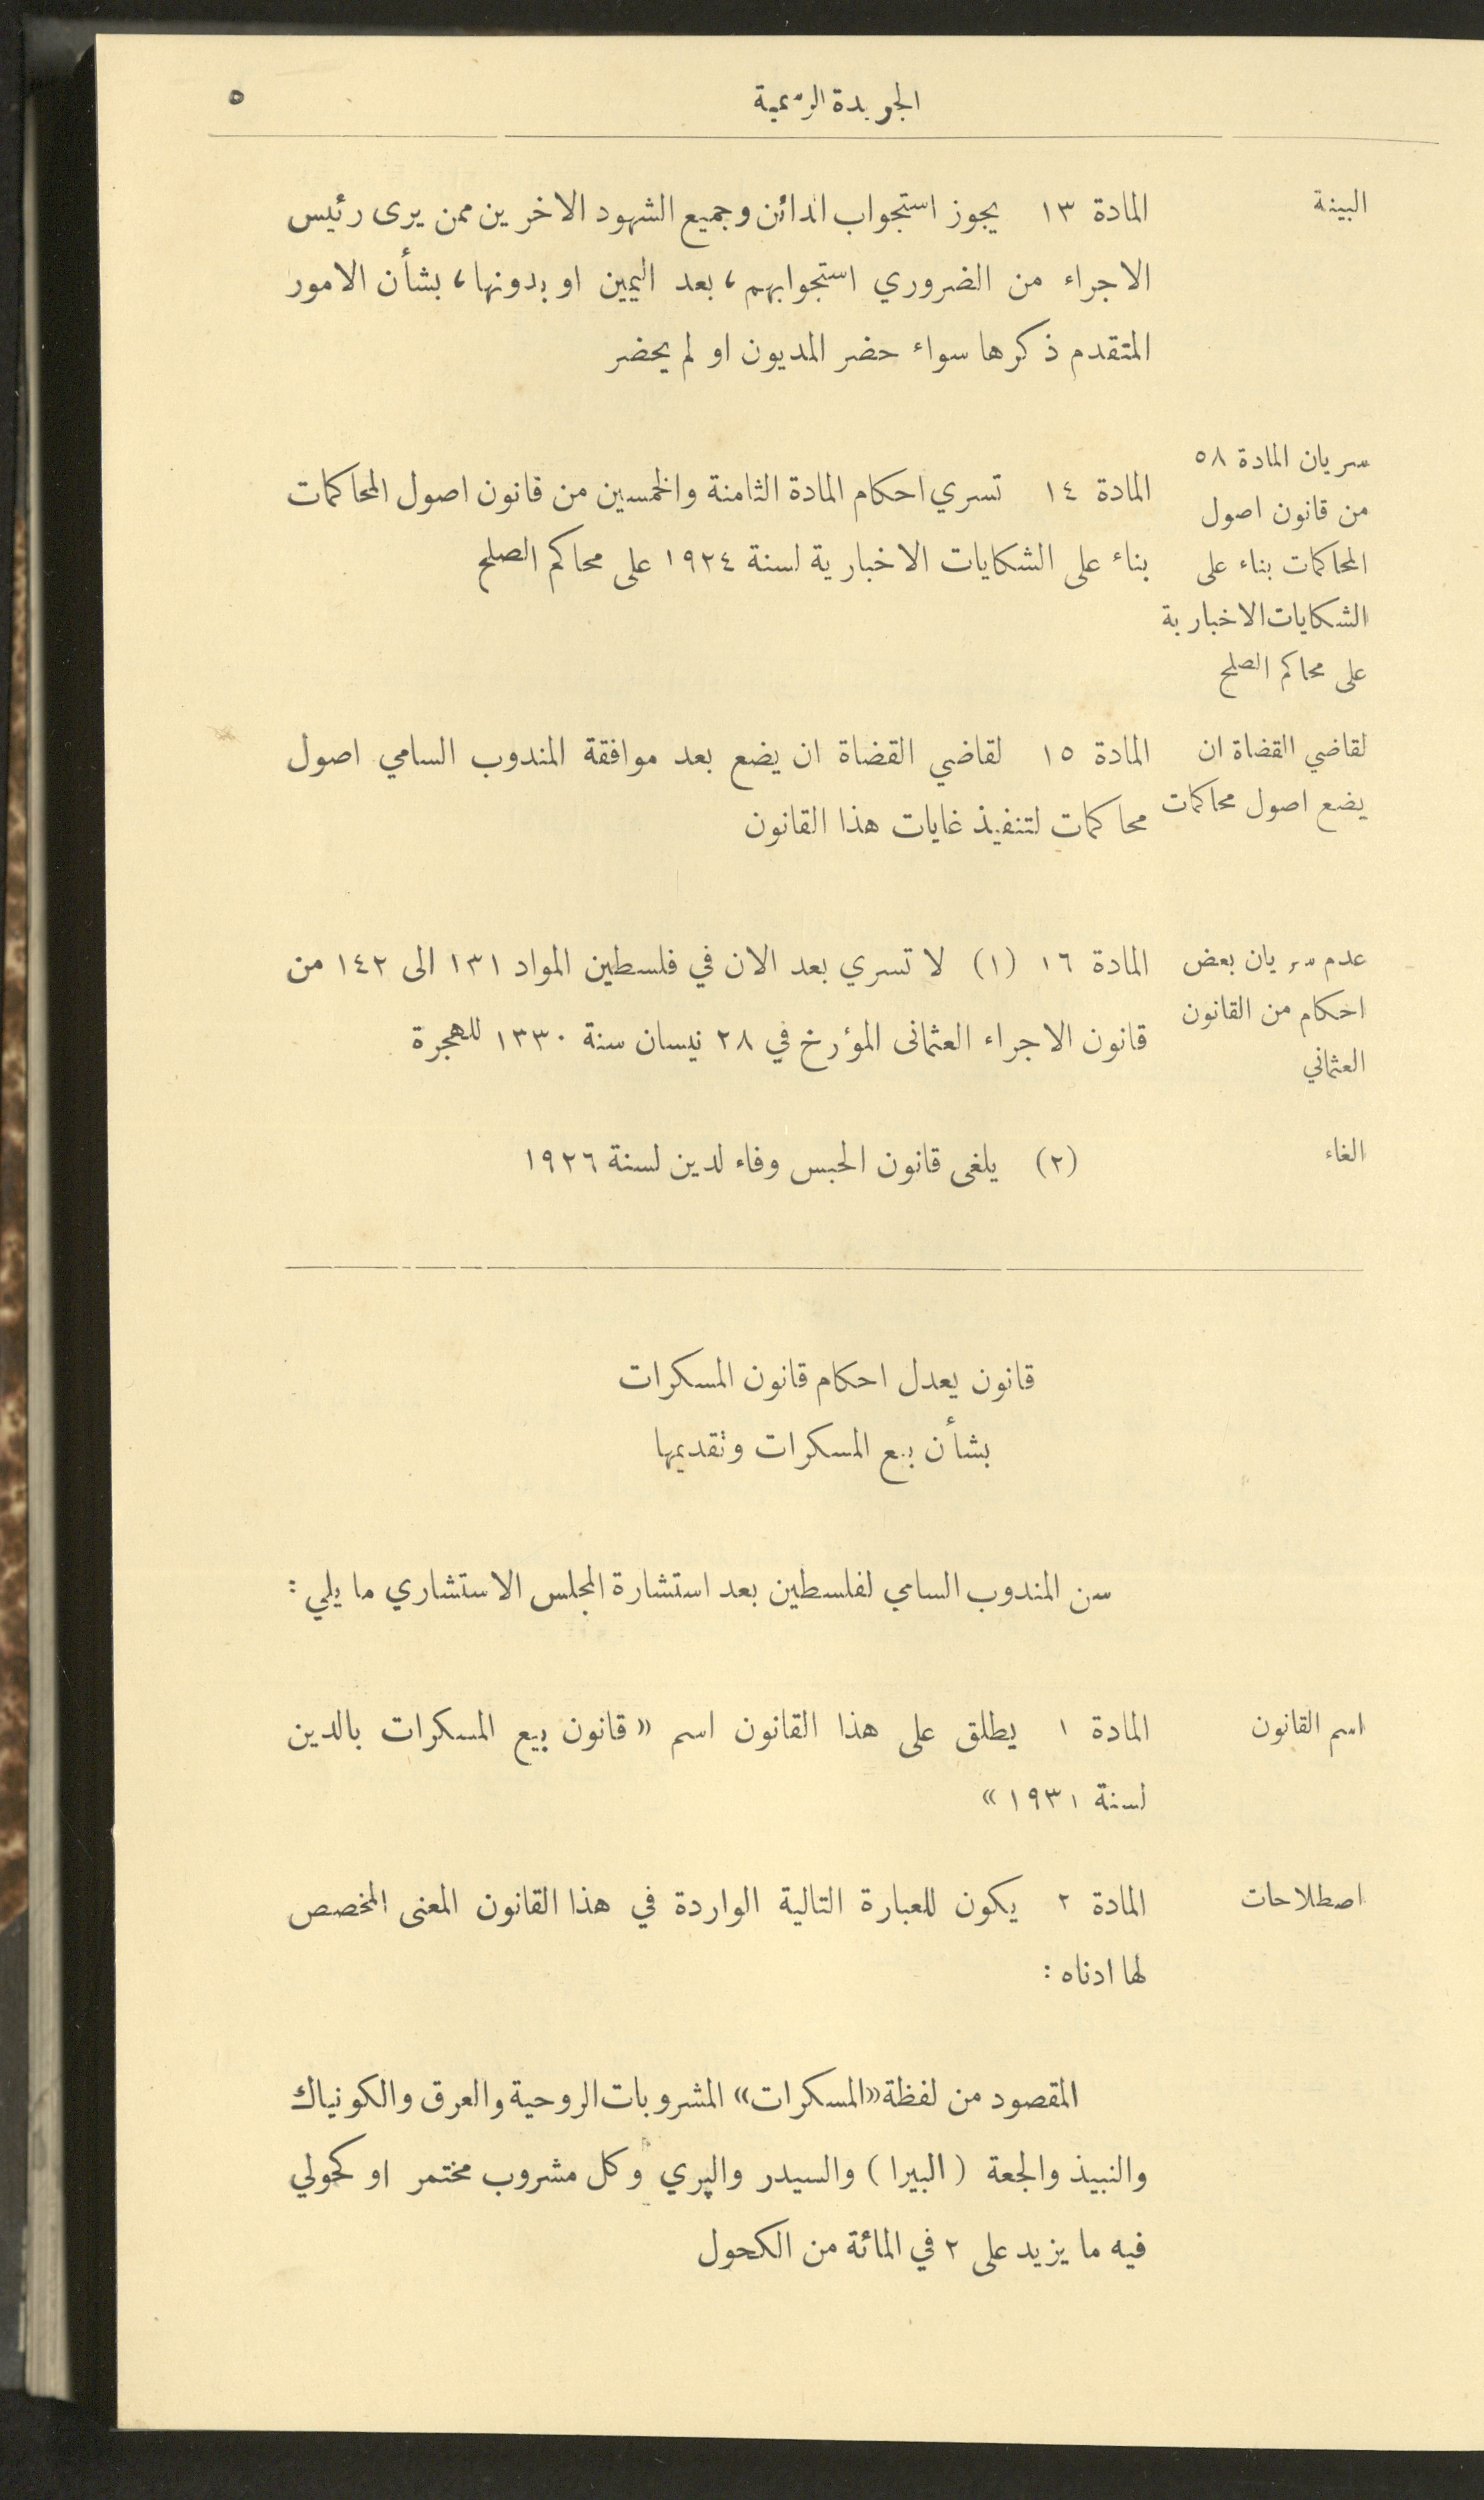 الجريدة الرسمية
٥
البينة
المادة ١٣ يجوز استجواب الدائن وجميع الشهود الاخرين ممن يرى رئيس
الاجراء من الضروري استجوابهم، بعد اليمين او بدونها، بشأن الامور
المتقدم ذكرها سواء حضر المديون او لم يحضر
سريان المادة ٥٨
من قانون اصول
المحاكمات بناء على
الشكايات الاخبارية
على محاكم الصلح
المادة ١٤ تسري احكام المادة الثامنة والخمسين من قانون اصول المحاكمات
بناء على الشكايات الاخبارية لسنة ١٩٢٤ على محاكم الصلح
لقاضي القضاة ان
يضع اصول محاكمات
المادة ١٥ لقاضي القضاة ان يضع بعد موافقة المندوب السامي اصول
محاكمات لتنفيذ غايات هذا القانون
عدم سريان بعض
احكام من القانون
العثماني
المادة ١٦ (١) لا تسري بعد الان في فلسطين المواد ١٣١ الى ١٤٢ من
قانون الاجراء العثمانى المؤرخ في ٢٨ نيسان سنة ١٣٣٠ للهجرة
الغاء
(٢) يلغى قانون الحبس وفاء لدين لسنة ١٩٢٦
قانون يعدل احكام قانون المسكرات
بشأن بيع المسكرات وتقديمها
سن المندوب السامي لفلسطين بعد استشارة المجلس الاستشاري ما يلي :
اسم القانون
المادة ١ يطلق على هذا القانون اسم «قانون بيع المسكرات بالدين
لسنة ١٩٣١»
اصطلاحات
المادة ٢ يكون للعبارة التالية الواردة في هذا القانون المعنى المخصص
لها ادناه :
المقصود من لفظة «المسكرات» المشروبات الروحية والعرق والكونياك
والنبيذ والجعة (البيرا) والسيدر والپري وكل مشروب مختمر او كحولي
فيه ما يزيد على ٢ في المائة من الكحول